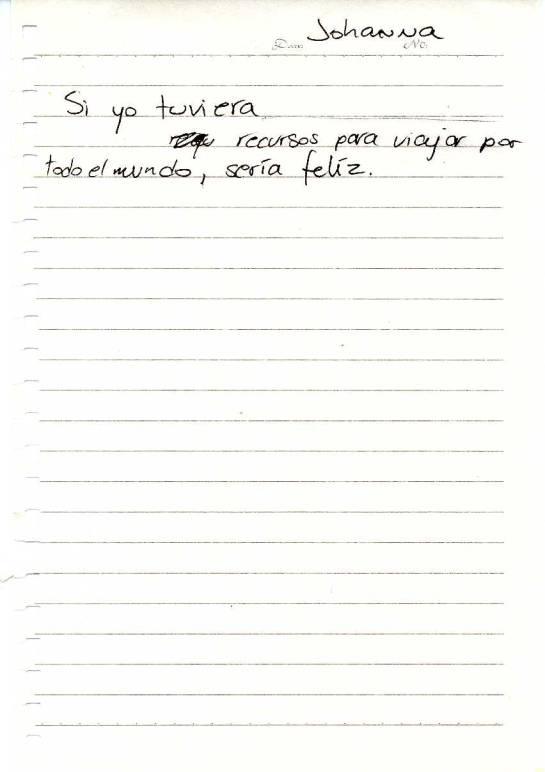 Johanna
Date No.
Si yo tuviera
recursos para viajar por
todo el mundo, sería felíz.